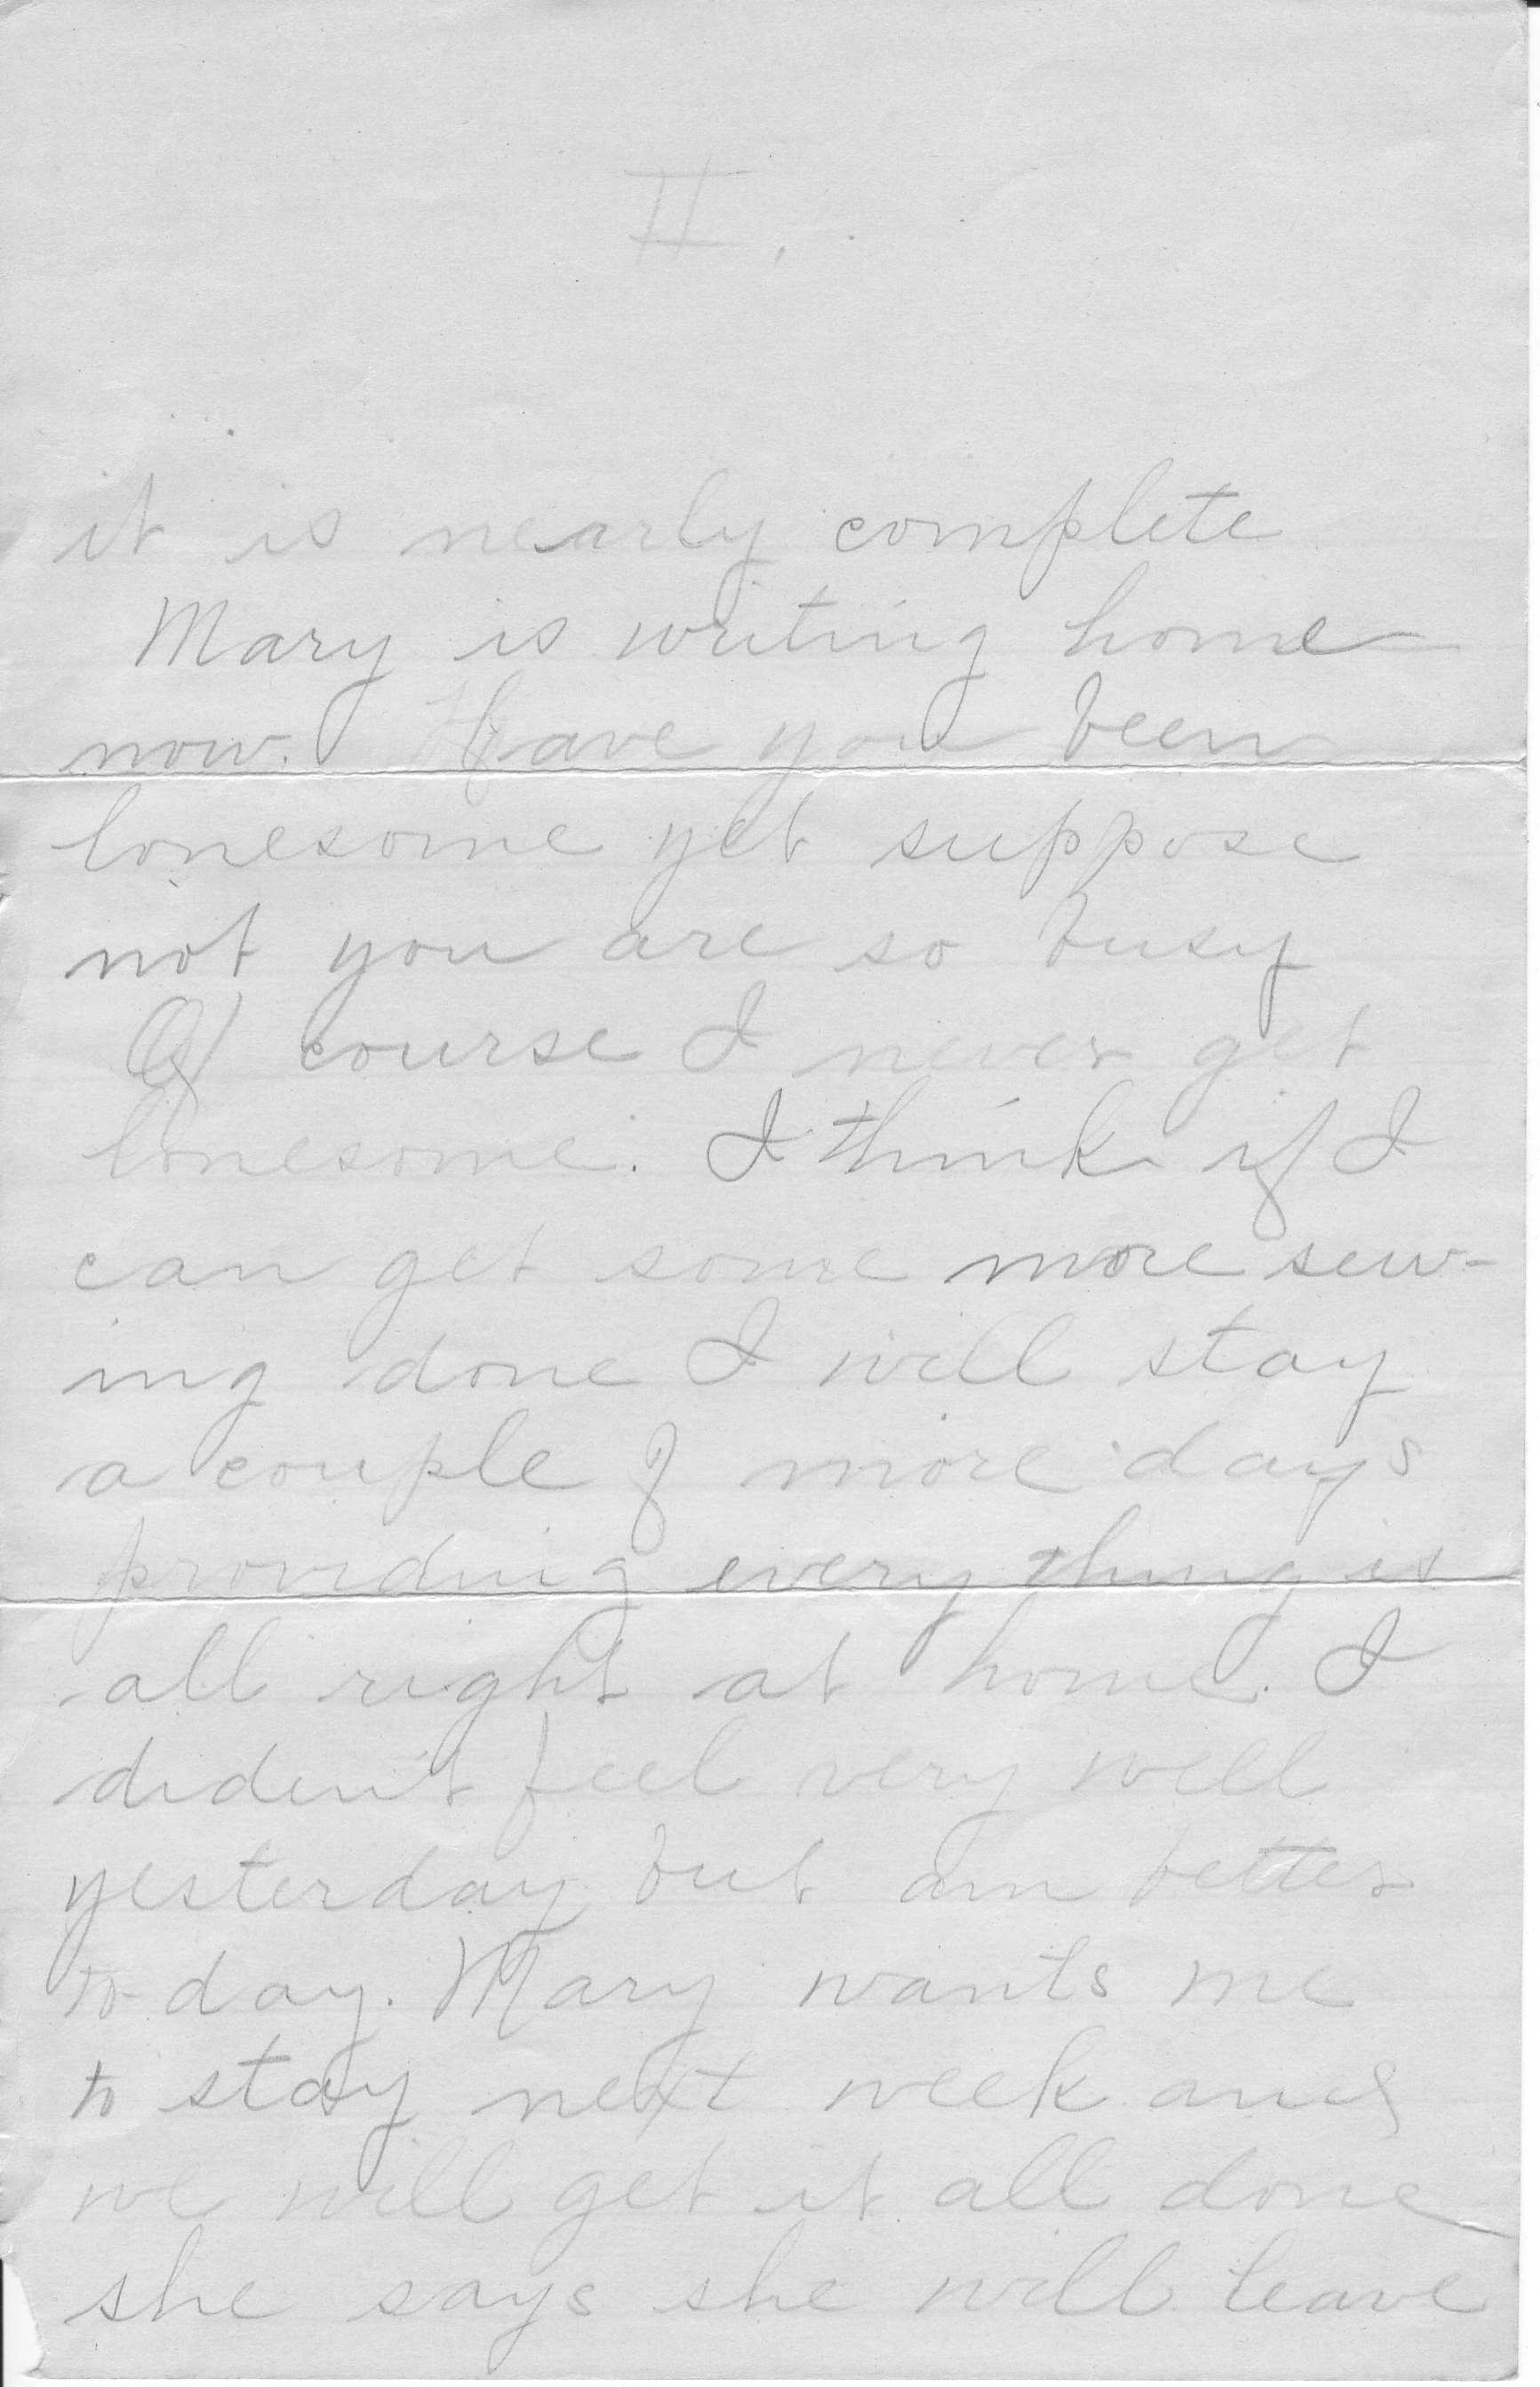 II.
it is nearly complete
Mary is writing home
now. Have you been
lonesome yet suppose
not you are so busy
Of course I never get
lonesome. I think if I
can get some more sew-
ing done I will stay
a couple of more days
providing every thing is
all right at home. I
diden't feel very well
yesterday but am better
to-day. Mary wants me
to stay next week and
we will get it all done
she says she will leave